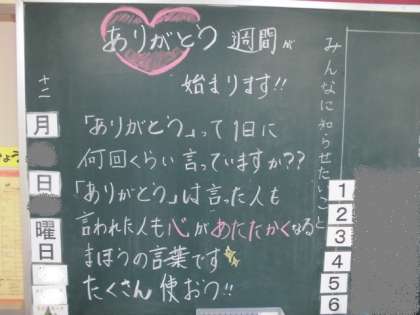 ありがとう週間が
始まります!!
「ありがとう」って1日に
何回くらい言っていますか??
「ありがとう」は言った人も
言われた人も心があたたかくなる
まほうの言葉です
たくさん使おう!!
みんなに知らせたいこと
1
2
3
4
5
6
十二
月
日
曜
日